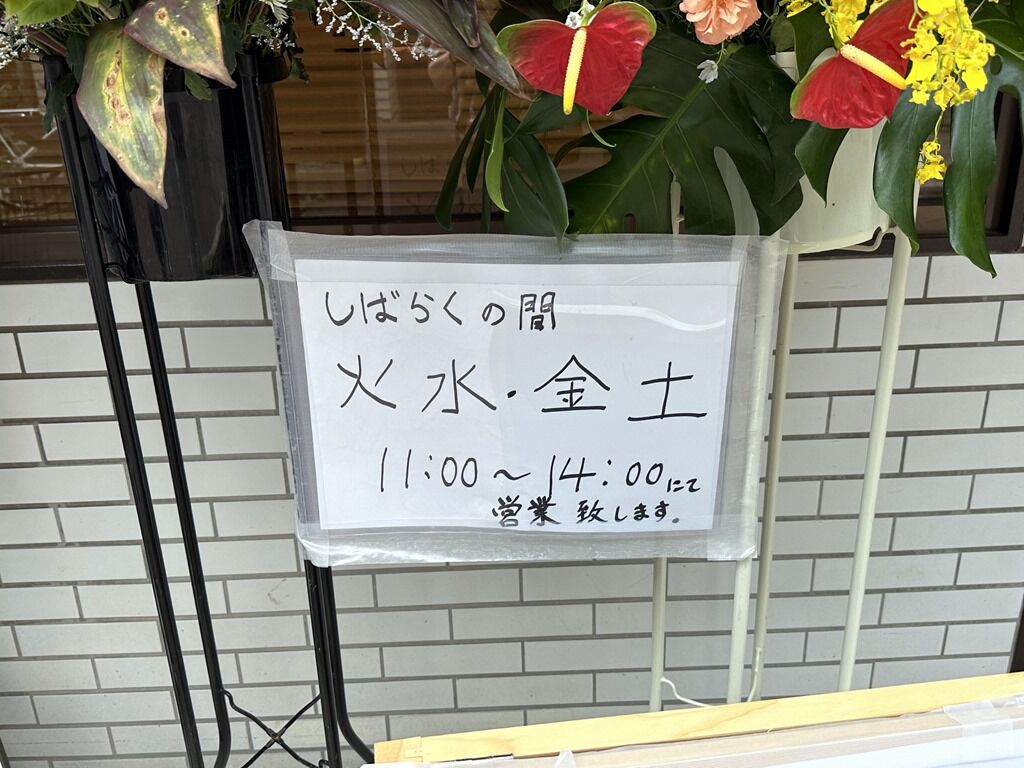 しばらくの間
火 水・金 土
11:00～14:00にて
営業 致します。